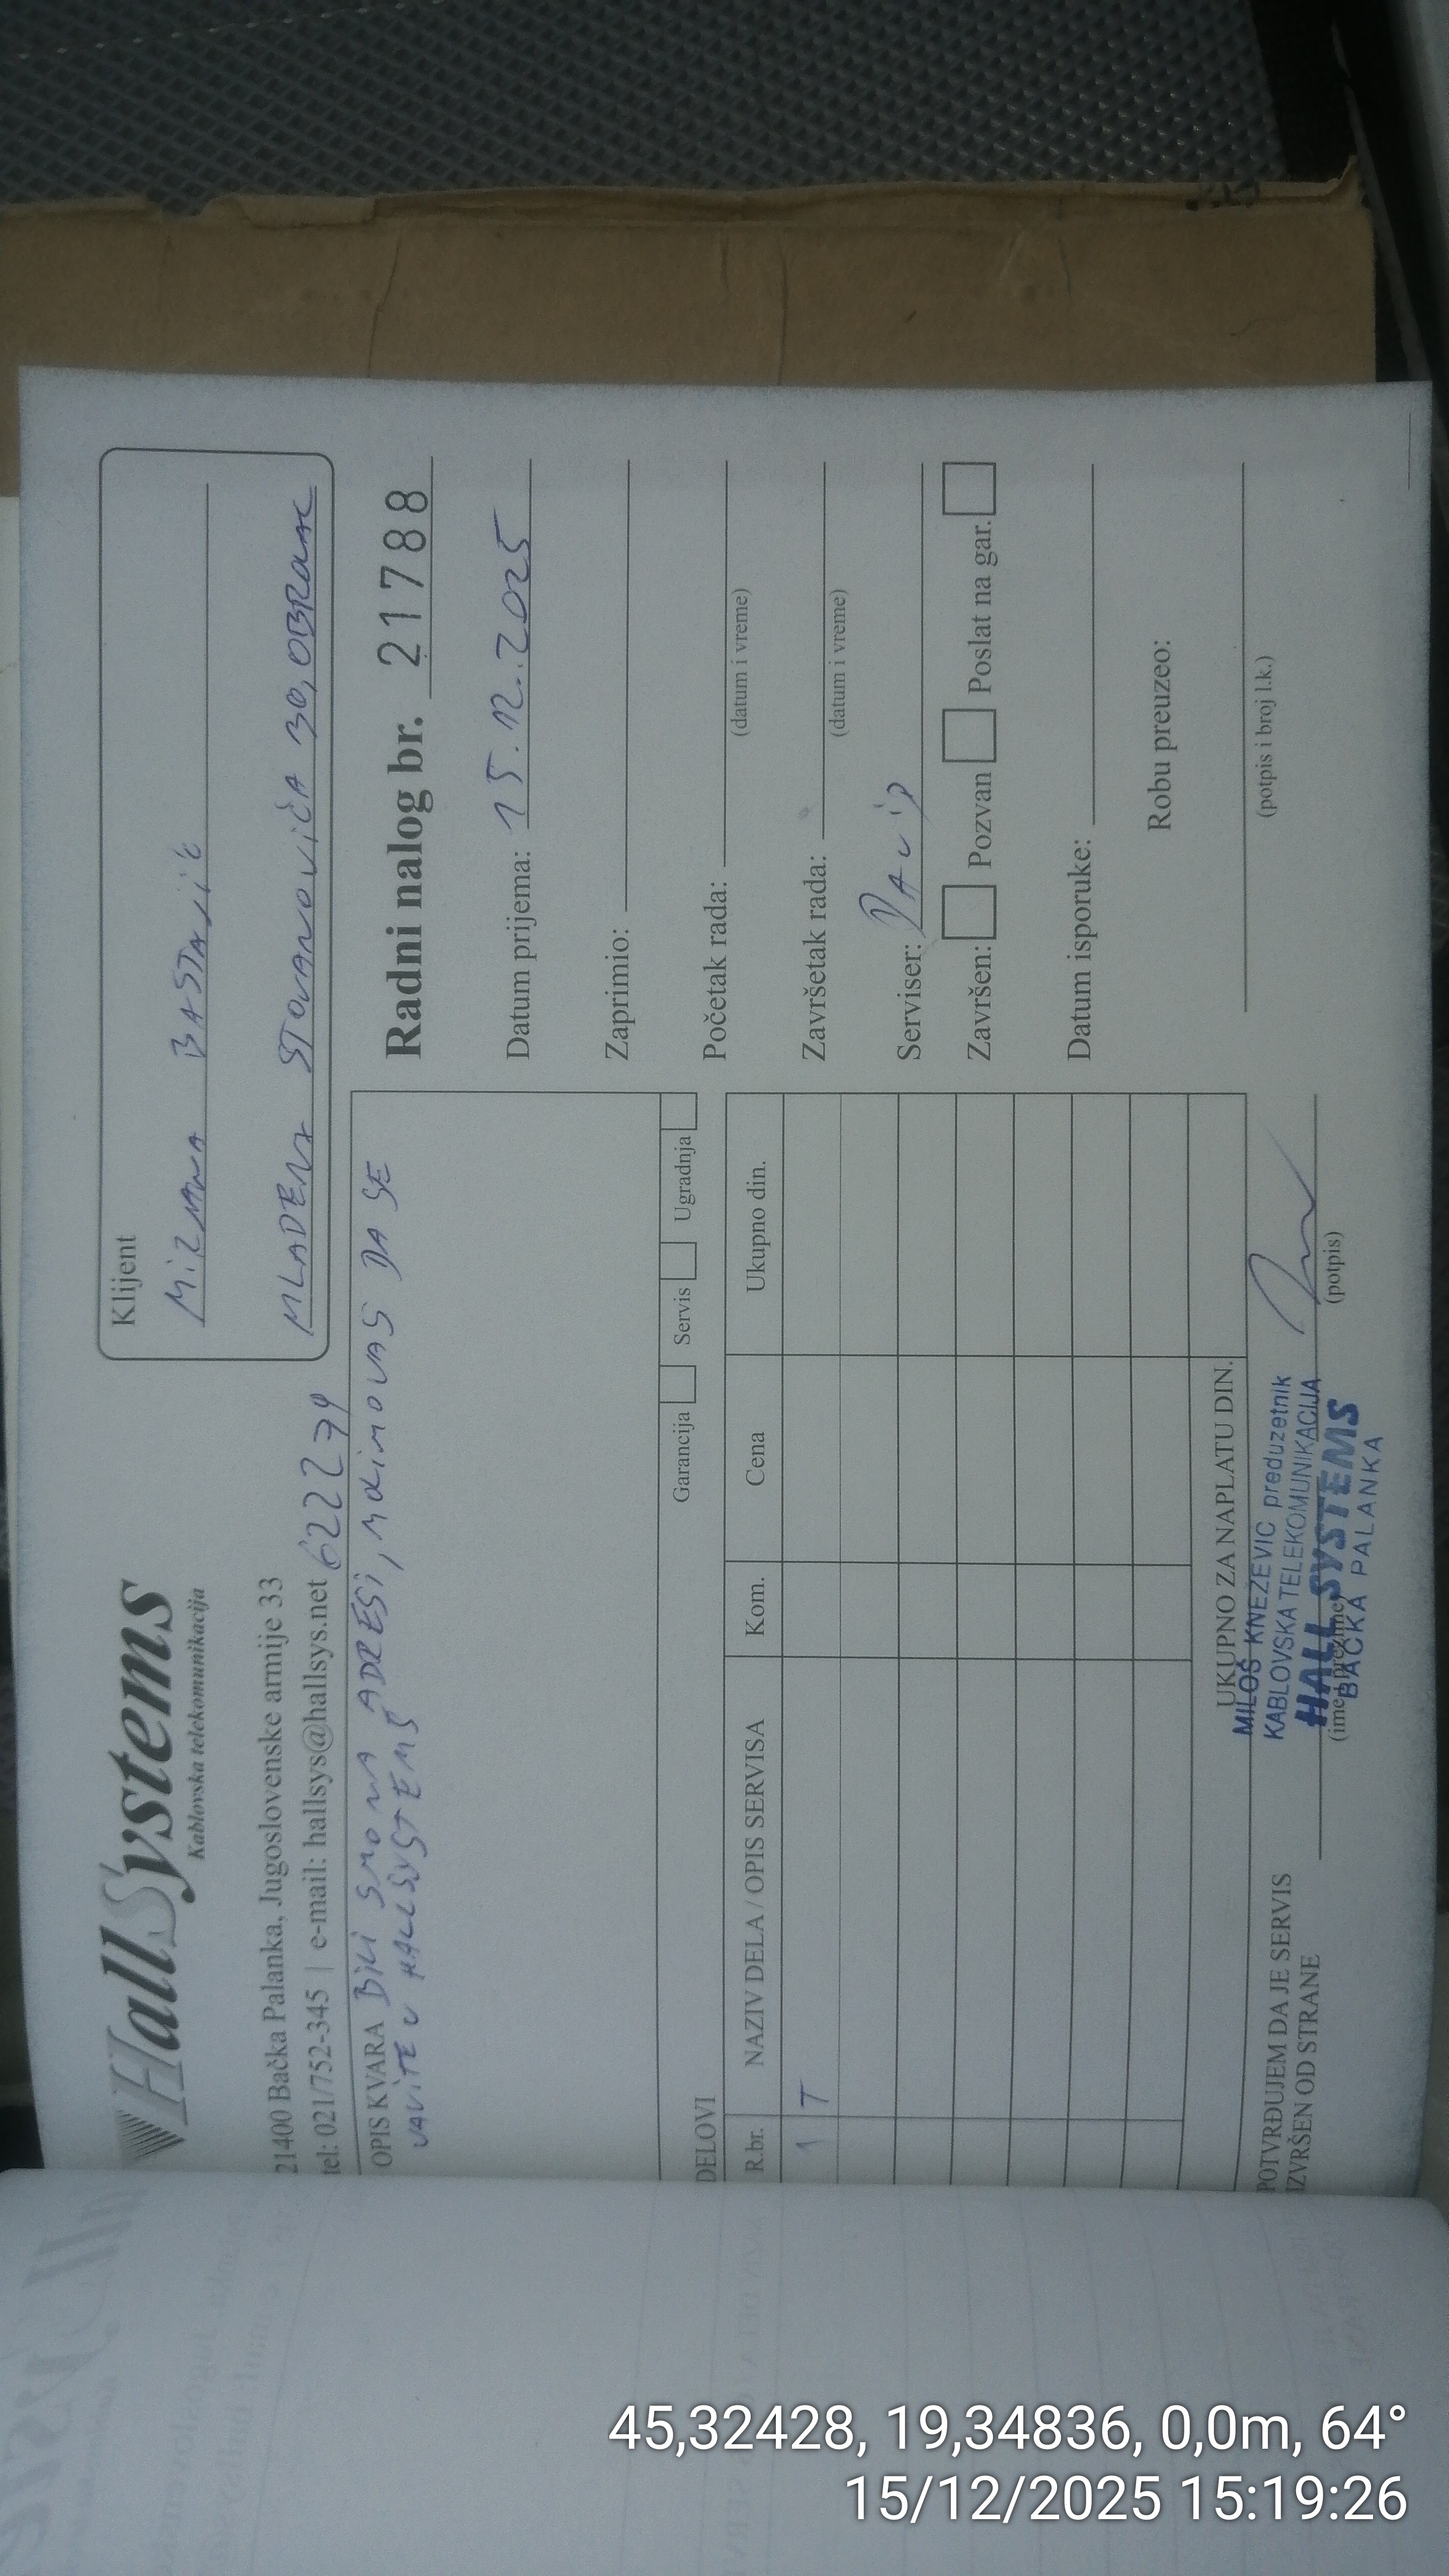 HallSystems
Kablovska telekomunikacija
21400 Bačka Palanka, Jugoslovenske armije 33
tel: 021/752-345 | e-mail: hallsys@hallsys.net
622279
Klijent
BASTAJIĆ
MLADENA STOJANOVIĆA 30, OBROVAC
OPIS KVARA BILI SMO NA ADRESI, MOLIMO VAS DA SE
JAVITE U HALLSYSTEMS
Garancija Servis Ugradnja
Radni nalog br. 21788
Datum prijema: 15.12.2025
Zaprimio:
Početak rada:
(datum i vreme)
Završetak rada:
(datum i vreme)
Serviser: DAVID
Završen: Pozvan Poslat na gar.
Datum isporuke:
Robu preuzeo:
(potpis i broj l.k.)
DELOVI
R.br. NAZIV DELA / OPIS SERVISA Kom. Cena Ukupno din.
1 T
UKUPNO ZA NAPLATU DIN.
POTVRĐUJEM DA JE SERVIS
IZVRŠEN OD STRANE
(ime i prezime)
(potpis)
MILOŠ KNEŽEVIĆ preduzetnik
KABLOVSKA TELEKOMUNIKACIJA
HALL SYSTEMS
BAČKA PALANKA
45,32428, 19,34836, 0,0m, 64°
15/12/2025 15:19:26